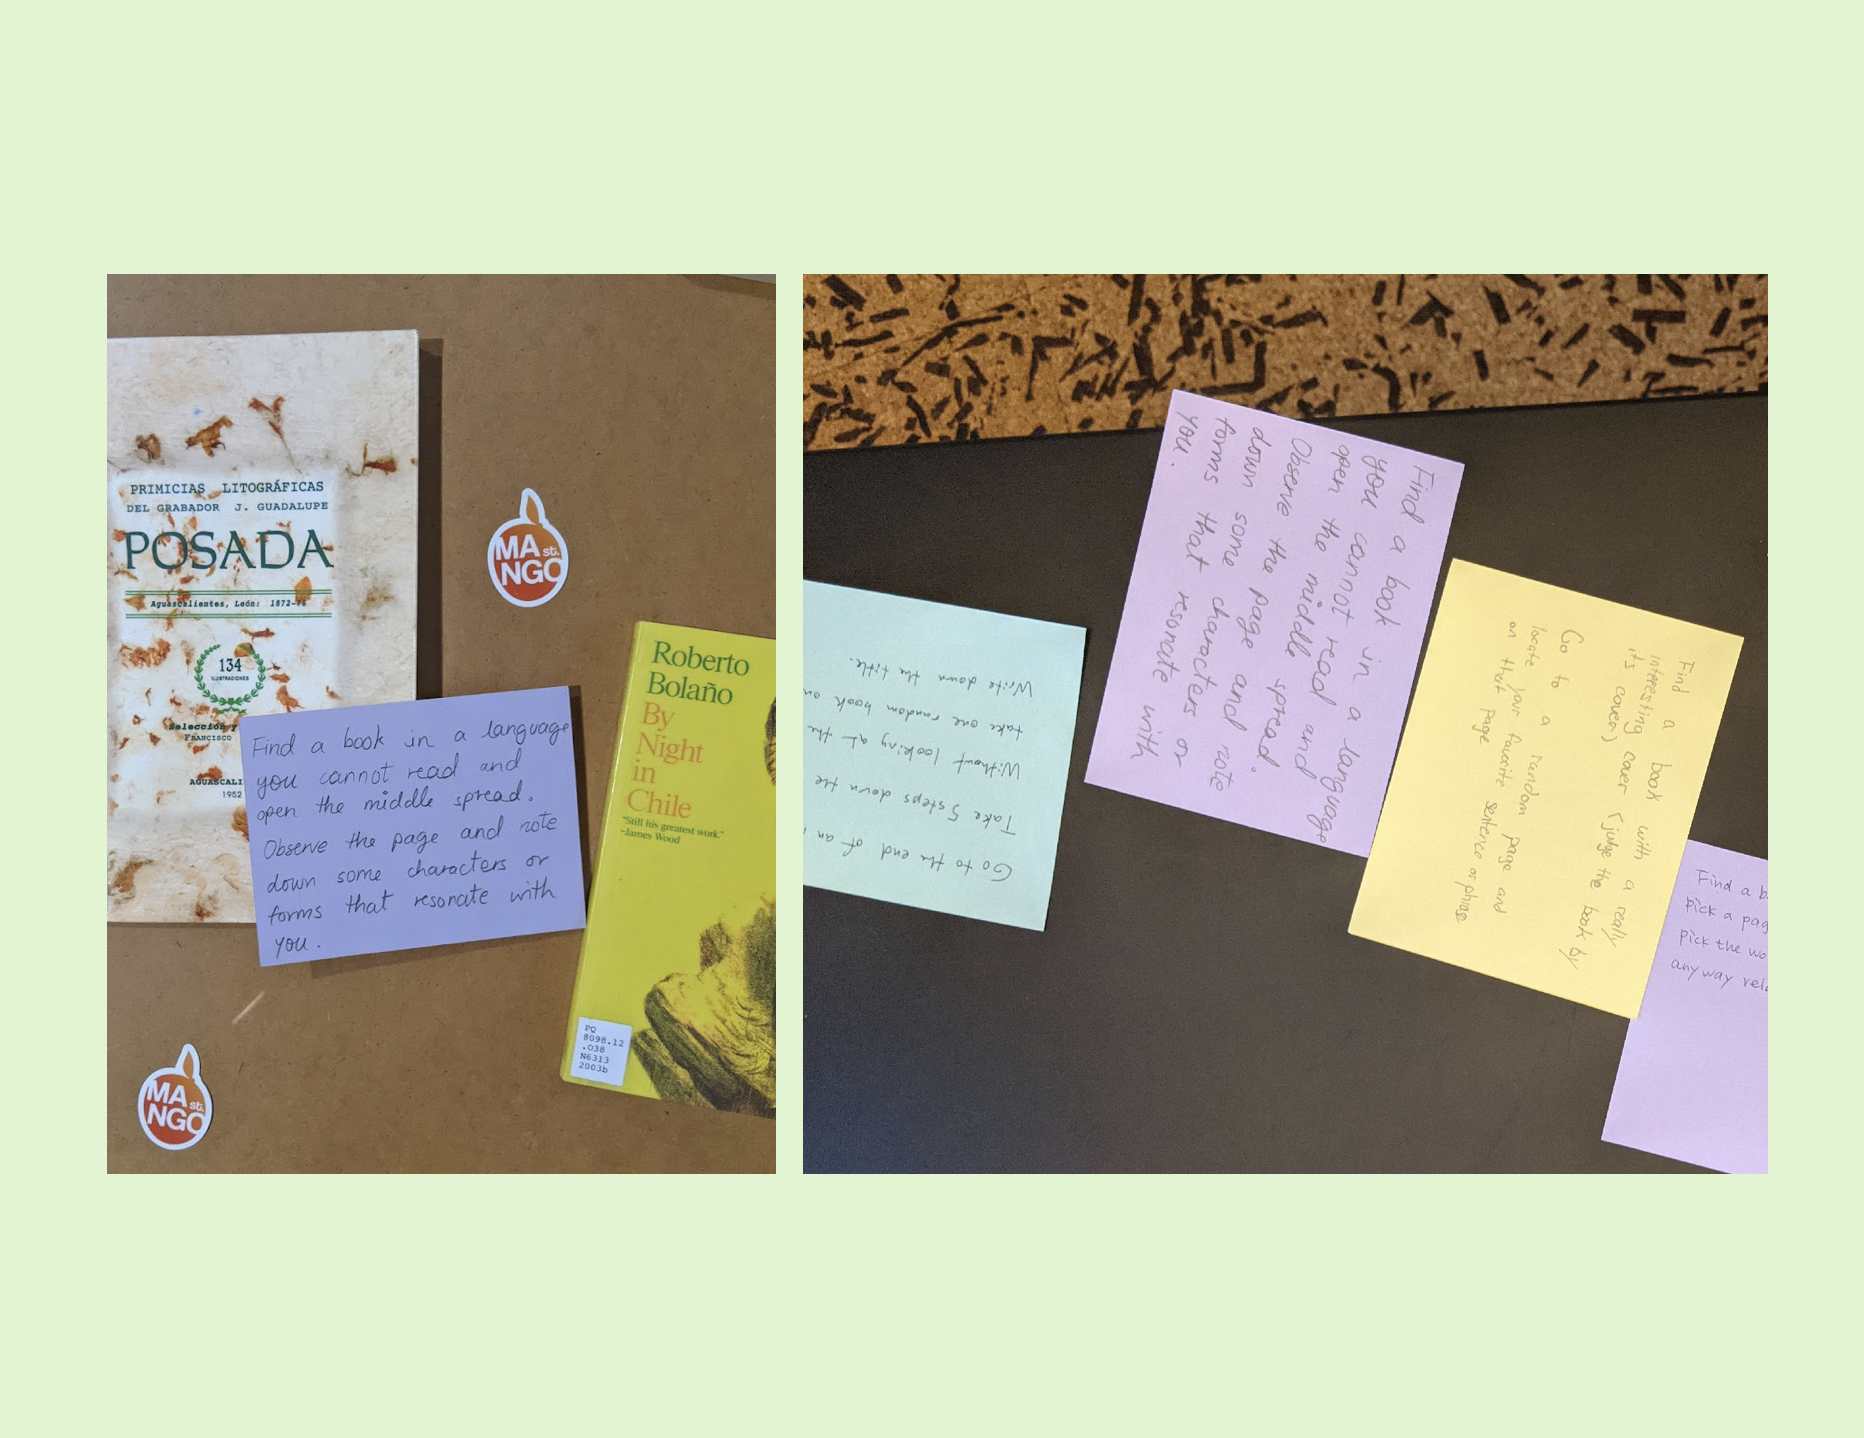 PRIMICIAS LITOGRÁFICAS
DEL GRABADOR J. GUADALUPE
POSADA
Aguascalientes, León: 1872-76
134
ILUSTRACIONES
Selección y
FRANCISCO
AGUASCALI
1952
MA st.
NGO
Find a book in a language
you cannot read and
open the middle spread.
Observe the page and note
down some characters or
forms that resonate with
you.
Roberto
Bolaño
By
Night
in
Chile
"Still his greatest work."
—James Wood
PQ
8098.12
.O38
N6313
2003b
MA st.
NGO
Go to the end of an
Take 5 steps down the
Without looking at the
take one random book on
Write down the title.
Find a book in a language
you cannot read and
open the middle spread.
Observe the page and note
down some characters or
forms that resonate with
you.
Find a book with a really
interesting cover (judge the book by
its cover)
Go to a random page and
locate your favorite sentence or phrase
on that page
Find a b
pick a pag
pick the wo
anyway rela